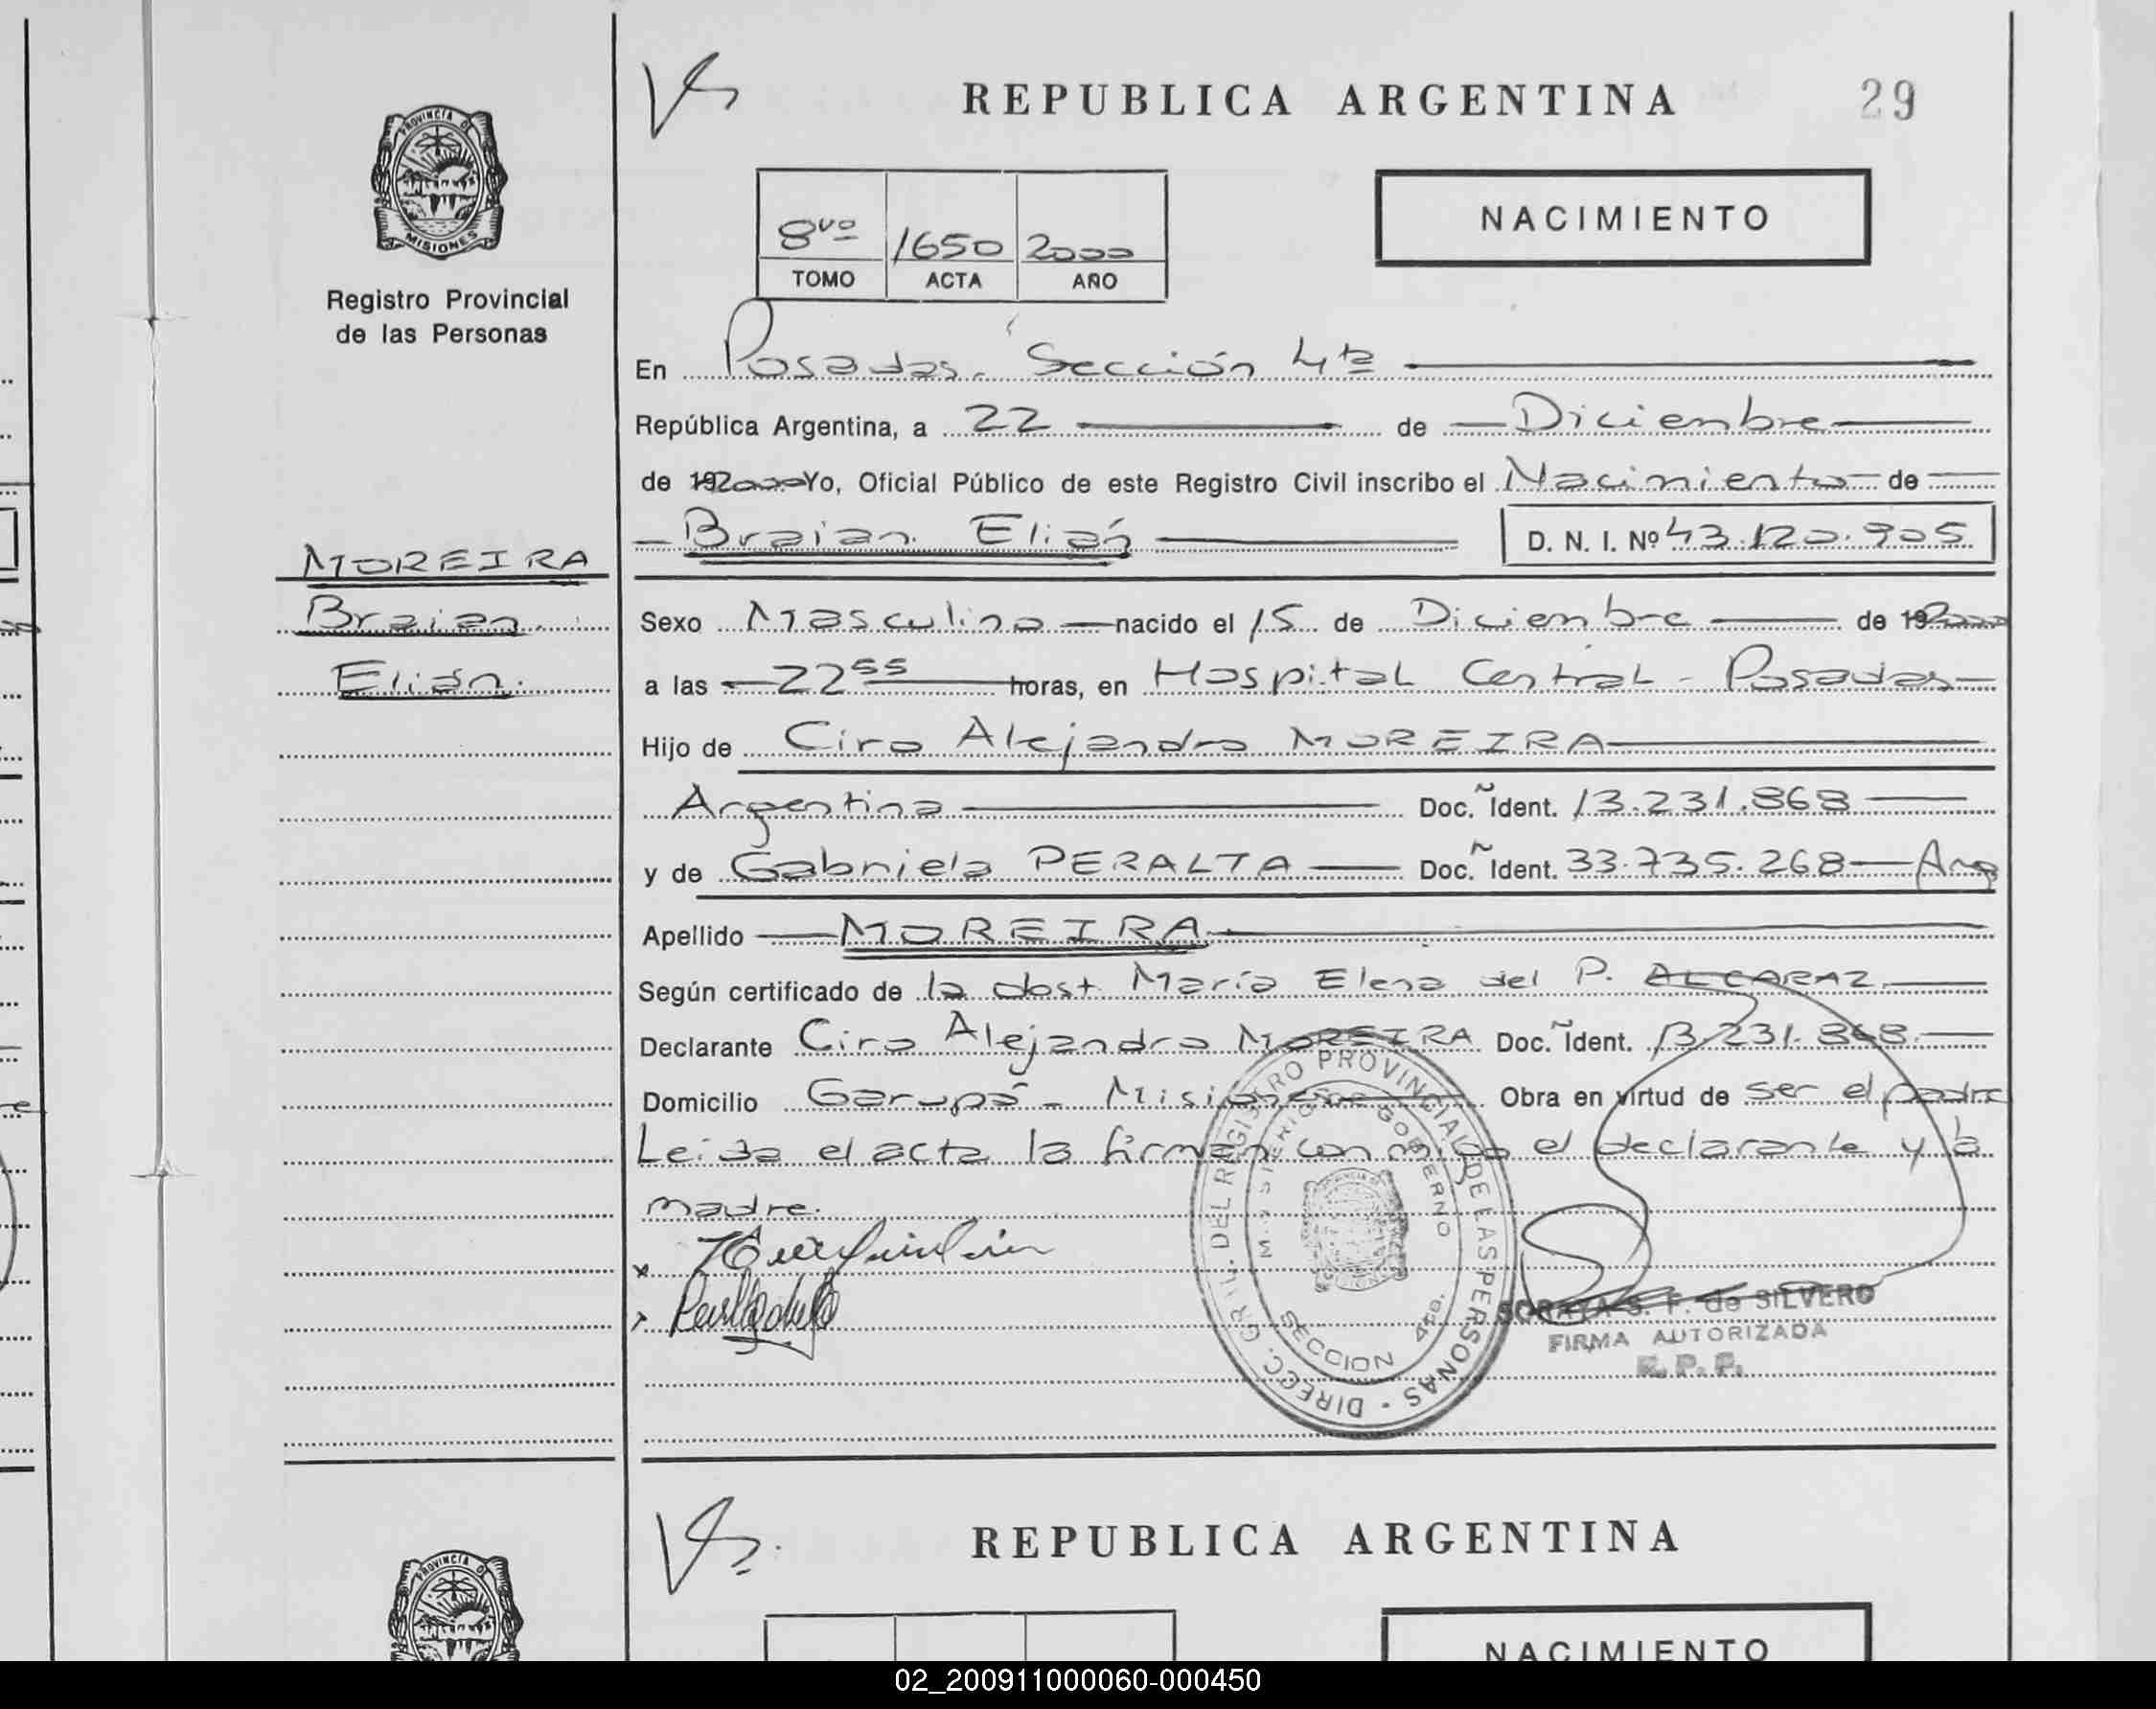 REPUBLICA ARGENTINA
29
PROVINCIA DE
MISIONES
Registro Provincial
de las Personas
NACIMIENTO
8vo 1650 2000
TOMO ACTA AÑO
En Posadas. Sección 4ta
República Argentina, a 22 de Diciembre
de 192000 Yo, Oficial Público de este Registro Civil inscribo el Nacimiento de
Braian Elián D. N. I. Nº 43.120.905
MOREIRA
Braian
Elián.
Sexo Masculino nacido el 15 de Diciembre de 192000
a las 22 55 horas, en Hospital Central - Posadas
Hijo de Ciro Alejandro MOREIRA
Argentina Doc. Ident. 13.231.868
y de Gabriela PERALTA Doc. Ident. 33.735.268 Arg
Apellido MOREIRA
Según certificado de la obst. María Elena del P. ALCARAZ
Declarante Ciro Alejandro MOREIRA Doc. Ident. 13.231.868
Domicilio Garupá - Misiones Obra en virtud de ser el padre
Leída el acta la firman conmigo el declarante y la
madre.
DIREC. GRAL. DEL REGISTRO PROVINCIAL DE LAS PERSONAS
MINISTERIO GOBIERNO
SECCION 4ta.
SORAYA S. F. de SILVERO
FIRMA AUTORIZADA
R. P. P.
REPUBLICA ARGENTINA
PROVINCIA DE
NACIMIENTO
02_200911000060-000450